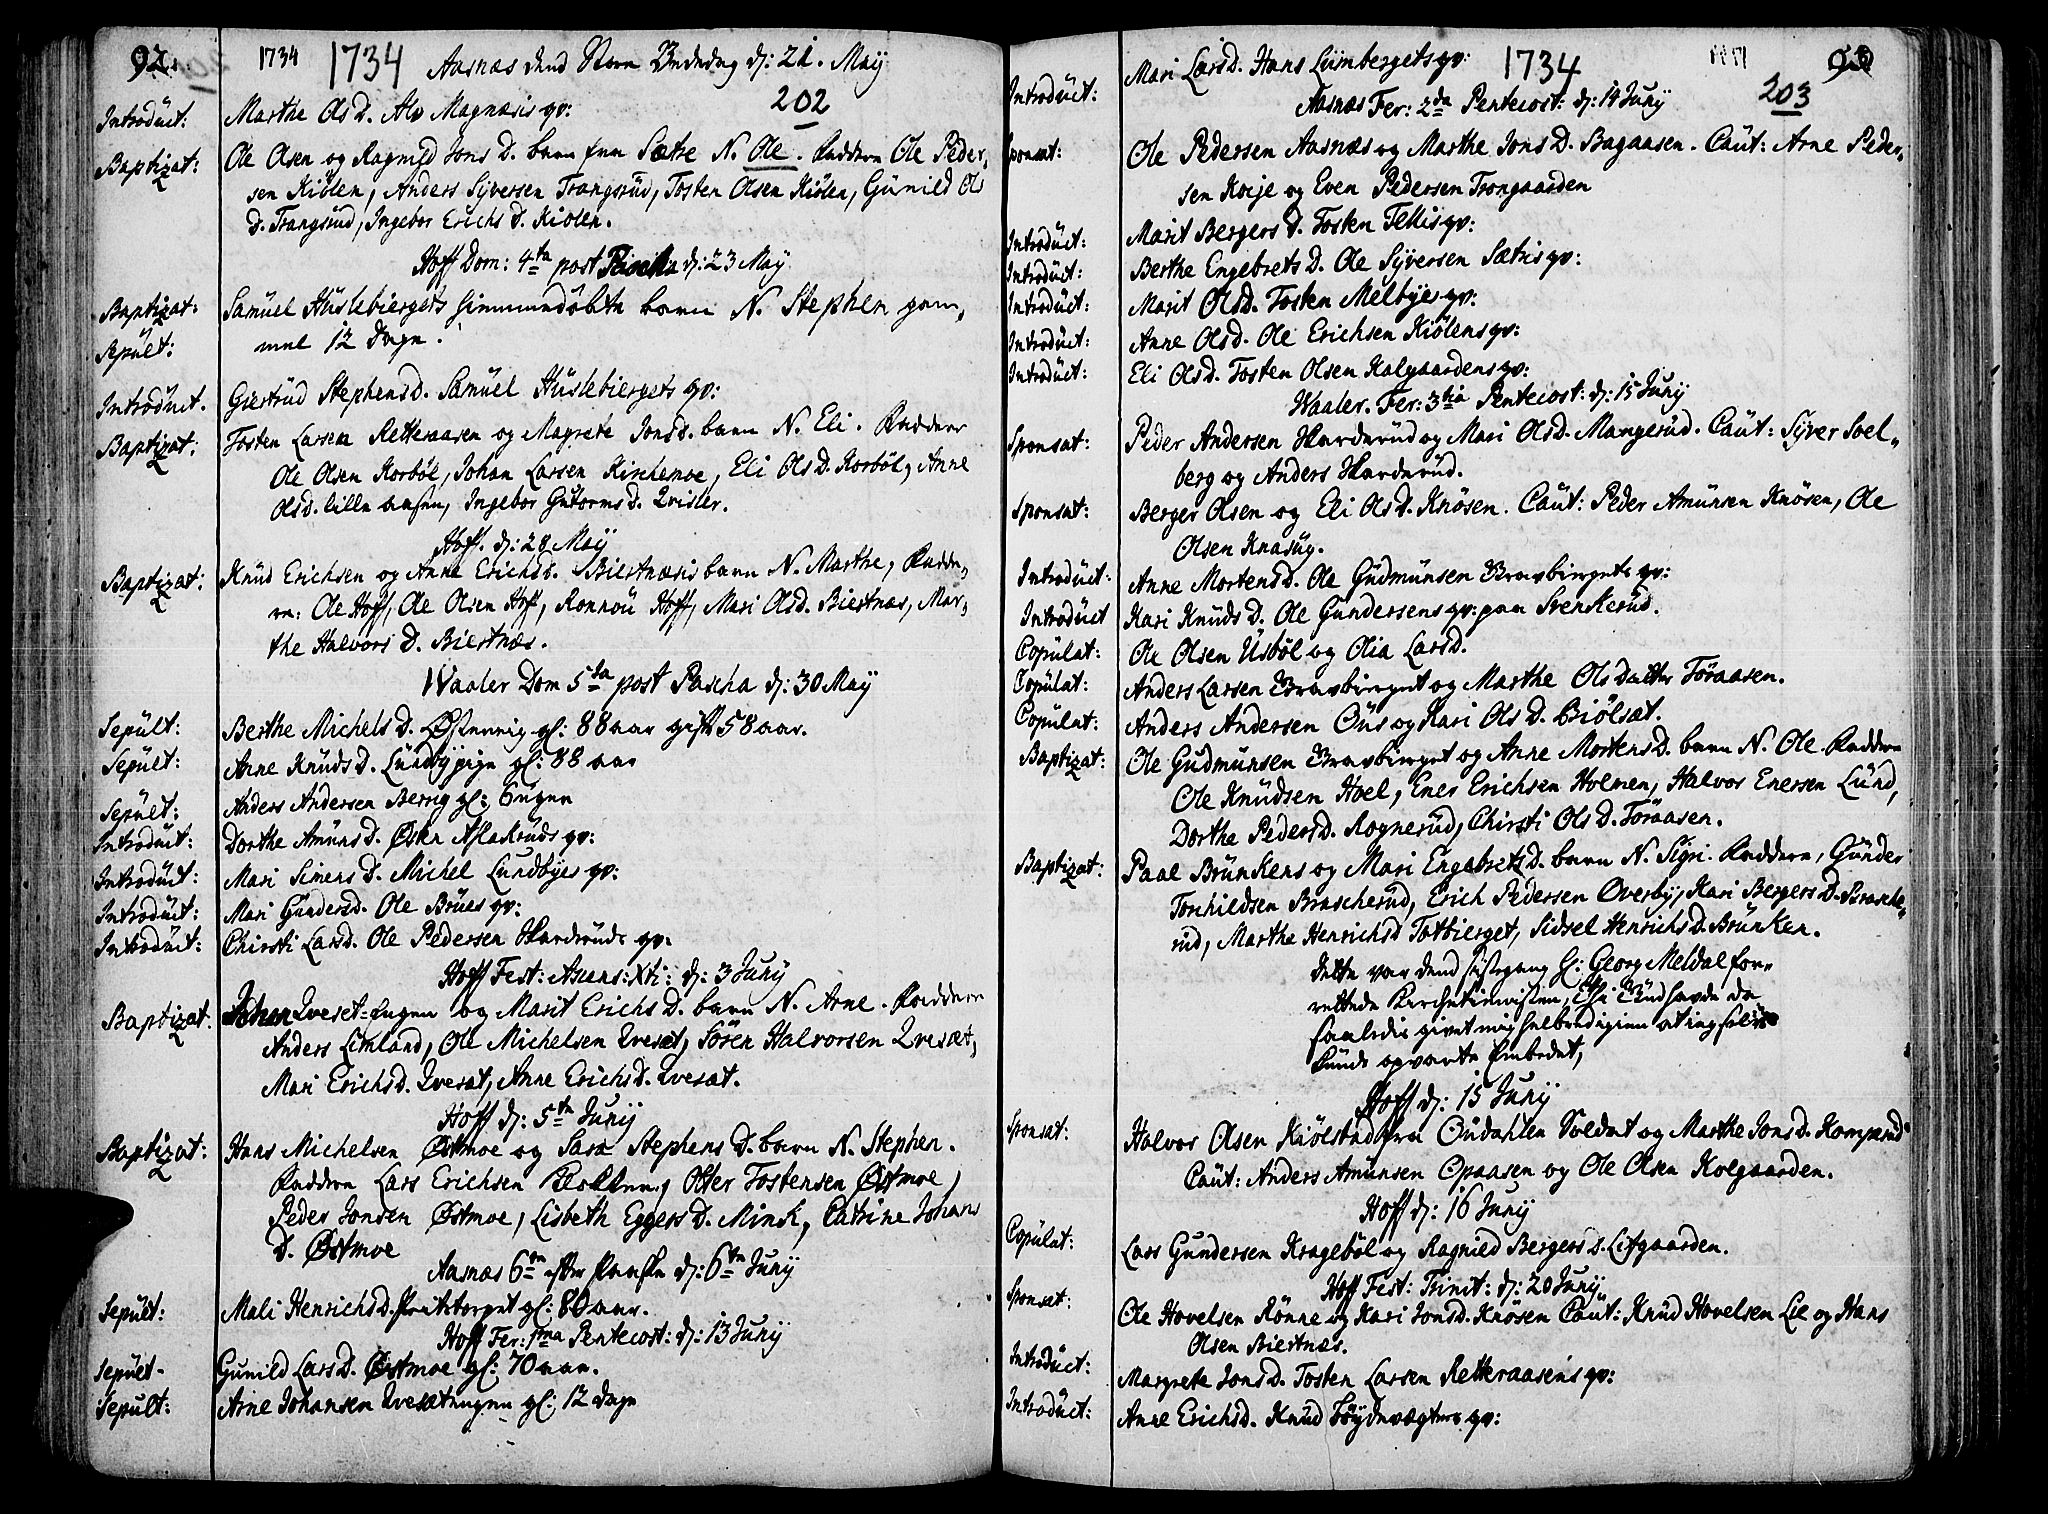 92. 1734 1734 Aasnæs dend Store Bededag d: 21. May
202
Introduct: Marthe OlsD. Alv Magnæsis qv:
Baptizat: Ole Olsen og Ragnild JonsD. barn fra Sætre N. Ole. Faddere Ole Peder-
sen Kiölen, Anders Syversen Trangsrud, Tosten Olsen Kiölen, Gunild Ols
D. Trangsrud, Ingebor ErichsD. Kiölen.
Hoff Dom: 4ta post Pascha d: 23 May
Baptizat: Samuel Huslebiergets hiemmedøbte barn N. Stephen gam-
Sepult: mel 12 Dage.
Introduct. Giertrud StephensD. Samuel Huslebiergets qv:
Baptizat: Tosten Larsen Retteraasen og Magrete JonsD. barn N. Eli. Faddere
Ole Olsen Korböl, Johan Larsen Kirchemoe, Eli OlsD. Korböl, Anne
OlsD. lille aasen, Ingebor GutormsD. Qvisler.
Hoff. d: 28 May
Baptizat: Knud Erichsen og Anne ErichsD. Biertnæsis barn N. Marthe, Fadde-
re: Ole Hoff, Ole Olsen Hoff, Ronnou Hoff, Mari OlsD. Biertnæs, Mar-
the HalvorsD. Biertnæs.
Waaler Dom 5ta post Pascha d: 30 May
Sepult: Berthe MichelsD. gl: 88 aar gift 58 aar.
Sepult: Anne KnudsD. Lundbypige gl: 88 aar
Sepult: Anders Andersen Berrig gl: 6 ugen
Introduct: Dorthe AmunsD. Østen Aslakruds qv:
Introduct: Mari SimensD. Michel Lundbyes qv:
Introduct: Mari GundersD. Ole Brues qv:
Introduct: Chirsti LarsD. Ole Pedersen Harderuds qv:
Hoff Fest: Ascens: Xti: d: 3 Junij
Baptizat: Johan Qveset-Eugen og Marit ErichsD. barn N. Arne. Faddere
Anders Limland, Ole Michelsen Qvesæt, Sören Halvorsen Qvesæt,
Mari ErichsD. Qvesæt, Anne ErichsD. Qvesæt.
Hoff d: 5te Junij
Baptizat: Hans Michelsen Østmoe og Sara StephensD. barn N. Stephen.
Faddere Lars Erichsen Otter Tostensen Østmoe,
Peder Jonsen Østmoe, Lisbeth EggersD. Minck, Catrine Johans
D. Østmoe
Aasnæs 6te efter Paaske d: 6te Junij
Sepult: Mali HenrichsD. gl: 80 aar.
Hoff Fer: 1ma Pentecost: d: 13 Junij
Sepult- Gunild LarsD. Østmoe gl: 70 aar.
Sepult: Arne Johansen Qvesæteugen gl: 12 Dage
93 1734
203
Mari LarsD. Hans Lumbergets qv:
Introduct:
Aasnæs Fer: 2da Pentecost: d: 14 Junij
Sponsat: Ole Pedersen Aasnæs og Marthe JonsD. Bagaasen. Caut: Arne Peder-
sen Koije og Even Pedersen Trongaarden
Introduct: Marit BergersD. Tosten Tellis qv:
Introduct: Berthe EngebretsD. Ole Syversen Sætris qv:
Introduct: Marit OlsD. Tosten Melbyes qv:
Introduct: Anne OlsD. Ole Erichsen Kiölens qv:
Introduct: Eli OlsD. Tosten Olsen Kalgaardens qv:
Waaler. Fer: 3tia Pentecost: d: 15 Junij
Sponsat: Peder Andersen Harderud og Mari OlsD. Mangerud. Caut: Syver Soel-
berg og Anders Harderud.
Sponsat: Berger Olsen og Eli OlsD. Knösen. Caut: Peder Amunsen Knösen, Ole
Olsen Knasug.
Introduct: Anne MortensD. Ole Gudmunsen Bravbierget qv:
Introduct Kari KnudsD. Ole Gundersens qv: paa Svenkerud.
Copulat: Ole Olsen Usböl og Olia LarsD.
Copulat: Anders Larsen Bravbierget og Marthe OlsDatter Töraasen.
Copulat: Anders Andersen Ous og Kari OlsD. Biölset.
Baptizat: Ole Gudmunsen Bravbierget og Anne MortensD. barn N. Ole. Faddere
Ole Knudsen Hoel, Ener Erichsen Holmen, Halvor Enersen Lund,
Dorthe PedersD. Rognerud, Chirsti OlsD. Töraasen.
Baptizat: Paal Brunkens og Mari EngebretsD. barn N. Sigri. Faddere, Gunder
Torchildsen Brascherud, Erich Pedersen Överby, Kari BergersD. Brasche-
rud, Marthe HenrichsD Totbierget, Sidsel HenrichsD. Brunken.
dette var dend sidste gang H: Georg Meldal for-
rettede Kirchetienisten, Gud havde da
saaledis givet mig helbredigien at ieg selv
kunde opvarte Embedet,
Hoff d: 15 Junij
Sponsat: Halvor Olsen Kiölstad fra Oudahlen Soldat og Marthe JonsD. Komperud
Caut: Anders Amunsen Opaasen og Ole Olsen Kolgaarden.
Hoff d: 16 Junij
Copulat: Lars Gundersen Krageböl og Ragnild BergersD. Lifgaarden.
Hoff Fest: Trinit: d: 20 Junij
Sponsat: Ole Hovelsen Rönne og Kari JonsD. Knösen Caut: Knud Hovelsen Lie og Hans
Olsen Biertnæs.
Introduct: Margrete JonsD. Tosten Larsen Retteraasens qv:
Introduct: Anne ErichsD. Knud qv: